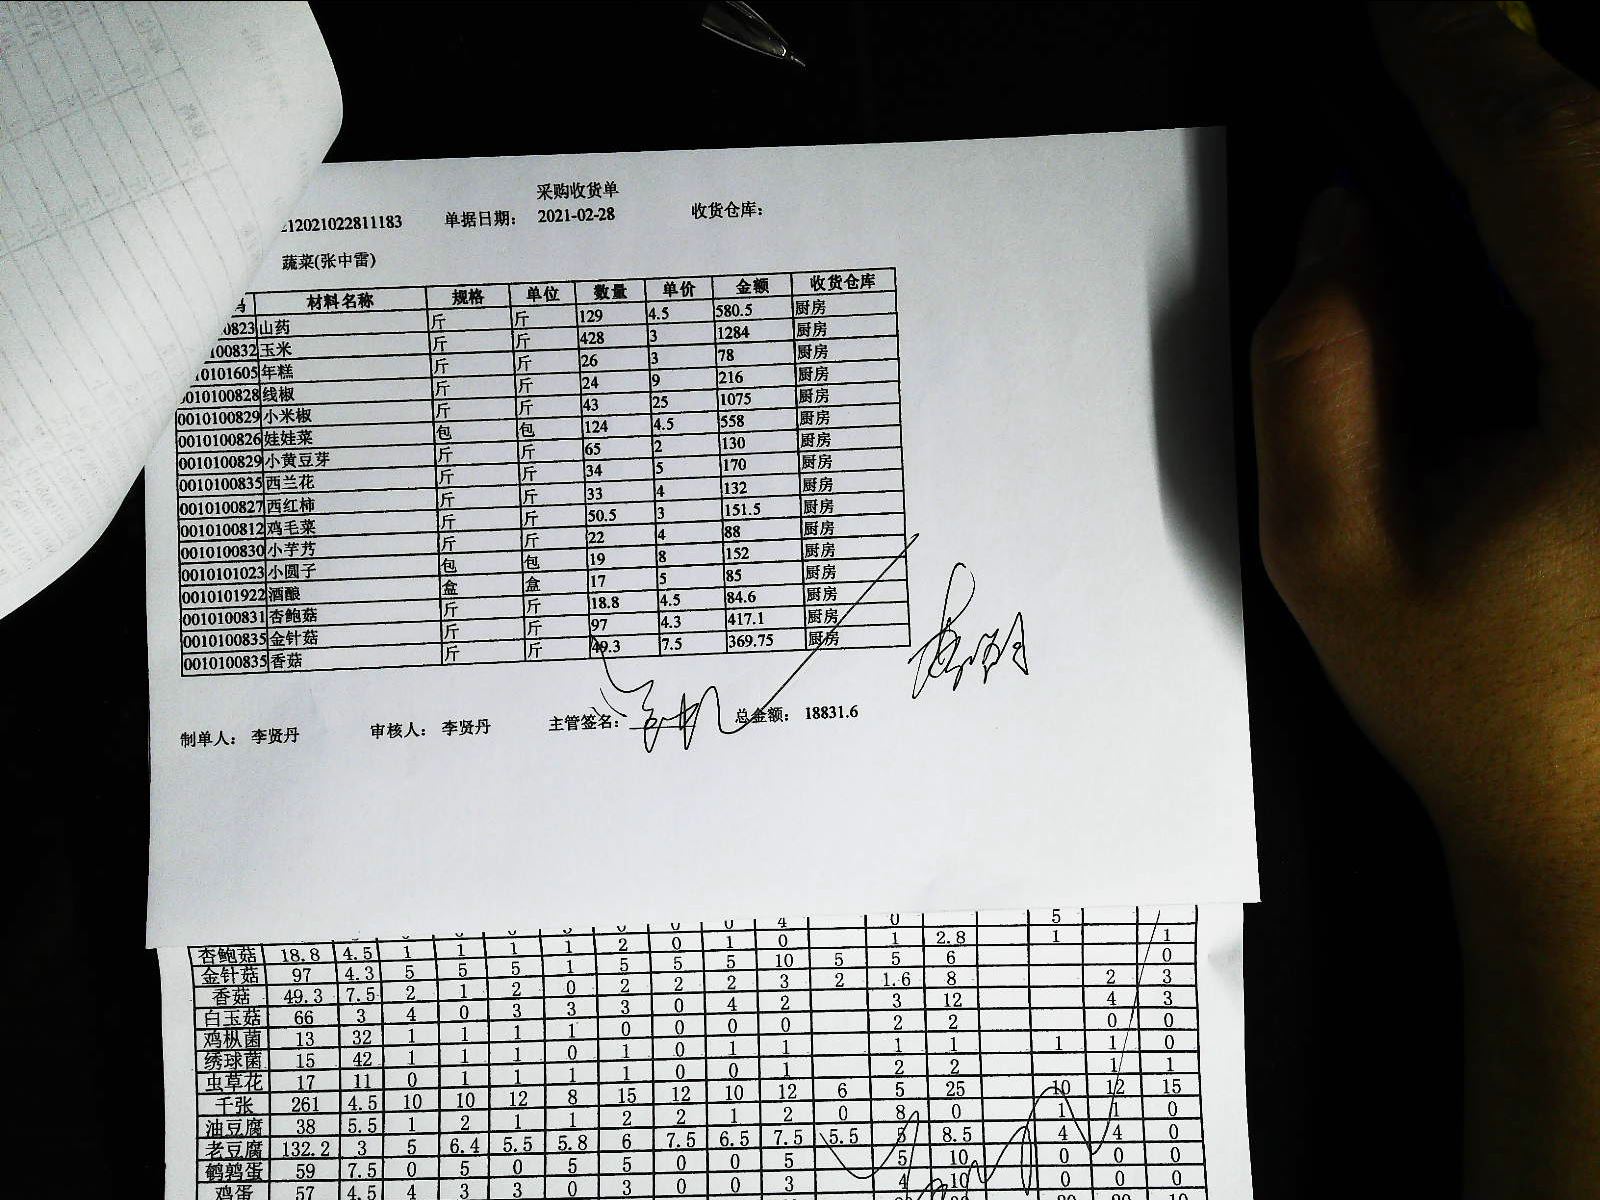 采购收货单
12021022811183 单据日期： 2021-02-28 收货仓库：
蔬菜(张中雷)
材料名称 规格 单位 数量 单价 金额 收货仓库
0823 山药 斤 斤 129 4.5 580.5 厨房
100832 玉米 斤 斤 428 3 1284 厨房
0101605 年糕 斤 斤 26 3 78 厨房
010100828 线椒 斤 斤 24 9 216 厨房
0010100829 小米椒 斤 斤 43 25 1075 厨房
0010100826 娃娃菜 包 包 124 4.5 558 厨房
0010100829 小黄豆芽 斤 斤 65 2 130 厨房
0010100835 西兰花 斤 斤 34 5 170 厨房
0010100827 西红柿 斤 斤 33 4 132 厨房
0010100812 鸡毛菜 斤 斤 50.5 3 151.5 厨房
0010100830 小芋艿 斤 斤 22 4 88 厨房
0010101023 小圆子 包 包 19 8 152 厨房
0010101922 酒酿 盒 盒 17 5 85 厨房
0010100831 杏鲍菇 斤 斤 18.8 4.5 84.6 厨房
0010100835 金针菇 斤 斤 97 4.3 417.1 厨房
0010100835 香菇 斤 斤 49.3 7.5 369.75 厨房
制单人： 李贤丹 审核人： 李贤丹 主管签名： 总金额： 18831.6
4 0 5
杏鲍菇 18.8 4.5 1 1 1 1 2 0 1 0 1 2.8 1 1
金针菇 97 4.3 5 5 5 1 5 5 5 10 5 5 6 0
香菇 49.3 7.5 2 1 2 0 2 2 2 3 2 1.6 8 2 3
白玉菇 66 3 4 0 3 3 3 0 4 2 3 12 4 3
鸡枞菌 13 32 1 1 1 1 0 0 0 0 2 2 0 0
绣球菌 15 42 1 1 1 0 1 0 1 1 1 1 1 1 0
虫草花 17 11 0 1 1 1 1 0 0 1 2 2 1 1
千张 261 4.5 10 10 12 8 15 12 10 12 6 5 25 10 12 15
油豆腐 38 5.5 1 2 1 1 2 2 1 2 0 8 0 1 1 0
老豆腐 132.2 3 5 6.4 5.5 5.8 6 7.5 6.5 7.5 5.5 5 8.5 4 4 0
鹌鹑蛋 59 7.5 0 5 0 5 5 0 0 5 5 10 0 0 0
鸡蛋 57 4.5 4 3 3 0 3 0 0 3 4 10 0 0 0